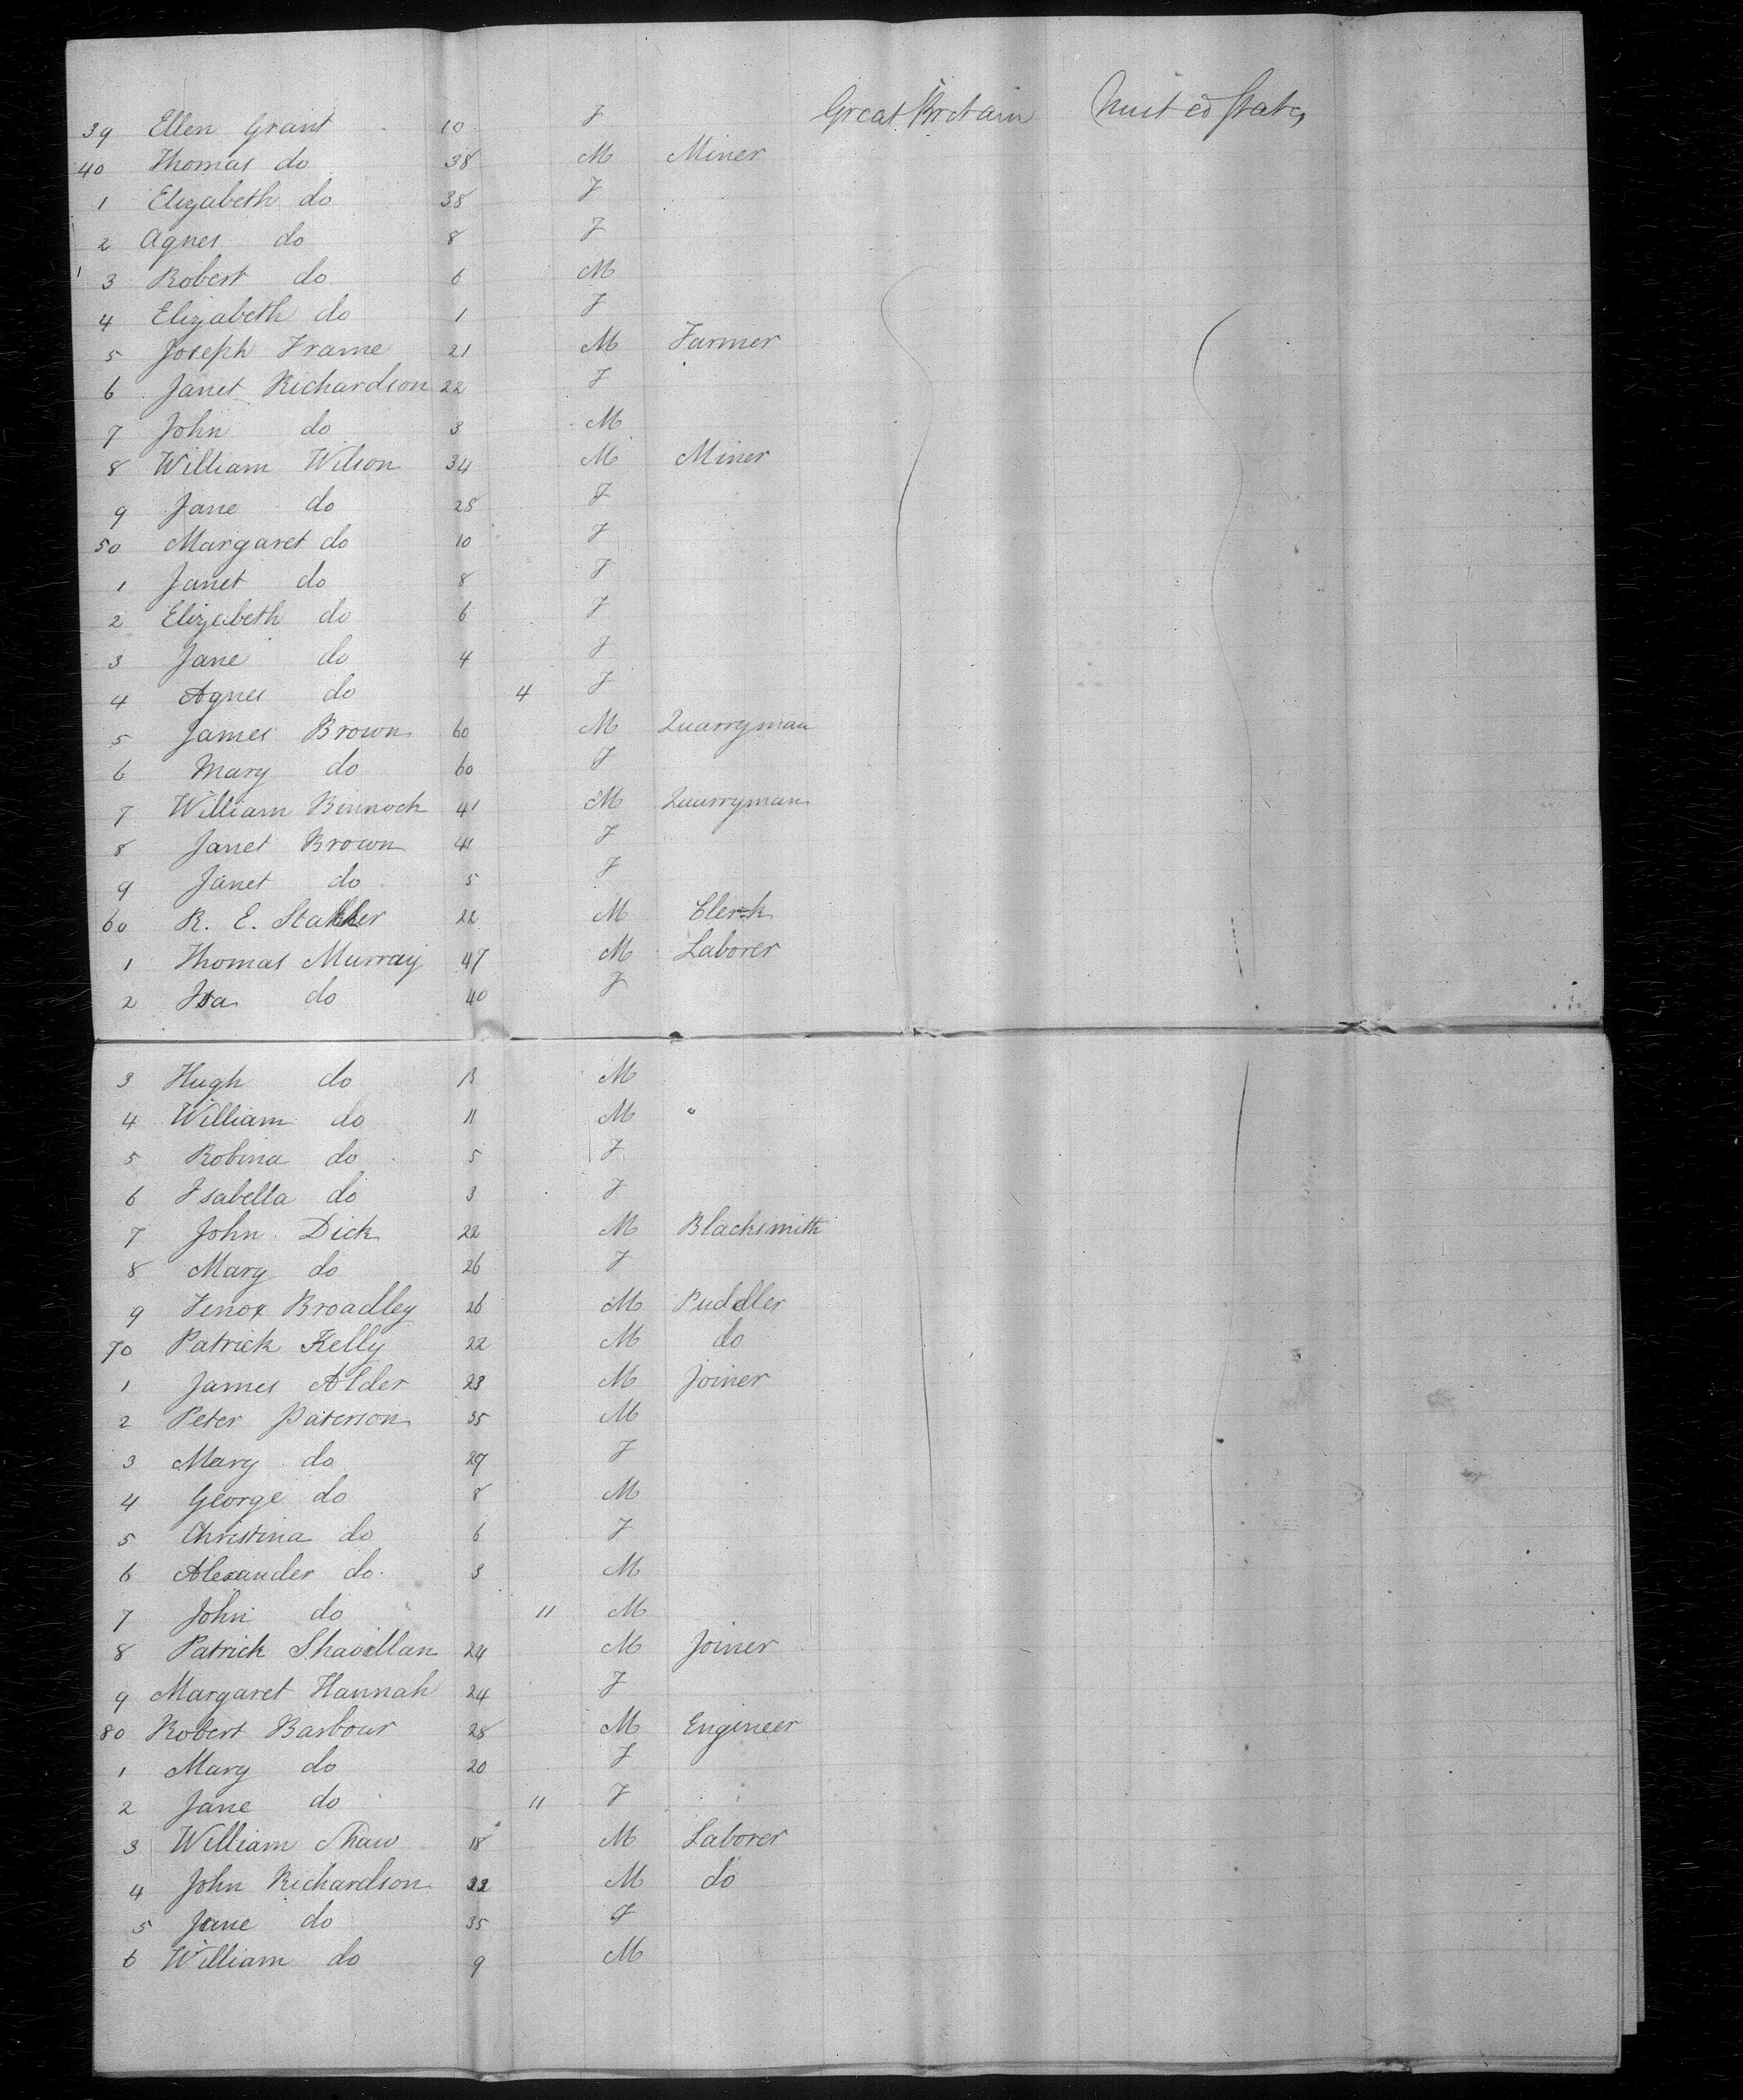 39 Ellen Grant 10 F Great Britain United States
40 Thomas do 38 M Miner
1 Elizabeth do 38 F
2 Agnes do 8 F
3 Robert do 6 M
4 Elizabeth do 1 F
5 Joseph Frame 21 M Farmer
6 Janet Richardson 22 F
7 John do 3 M
8 William Wilson 34 M Miner
9 Jane do 28 F
50 Margaret do 10 F
1 Janet do 8 F
2 Elizabeth do 6 F
3 Jane do 4 F
4 Agnes do 4 F
5 James Brown 60 M Quarryman
6 Mary do 60 F
7 William Binnock 41 M Quarryman
8 Janet Brown 41 F
9 Janet do 5 F
60 R. E. Stalker 22 M Clerk
1 Thomas Murray 47 M Laborer
2 Isa do 40 F
3 Hugh do 13 M
4 William do 11 M
5 Robina do 5 F
6 Isabella do 3 F
7 John Dick 22 M Blacksmith
8 Mary do 26 F
9 Broadley 26 M Puddler
70 Patrick Kelly 22 M do
1 James Alder 23 M Joiner
2 Peter Paterson 35 M
3 Mary do 29 F
4 George do 8 M
5 Christina do 6 F
6 Alexander do 3 M
7 John do 11 M
8 Patrick 24 M Joiner
9 Margaret Hannah 24 F
80 Robert Barbour 28 M Engineer
1 Mary do 20 F
2 Jane do 11 F
3 William Shaw 18 M Laborer
4 John Richardson M do
5 Jane do 35 F
6 William do 9 M